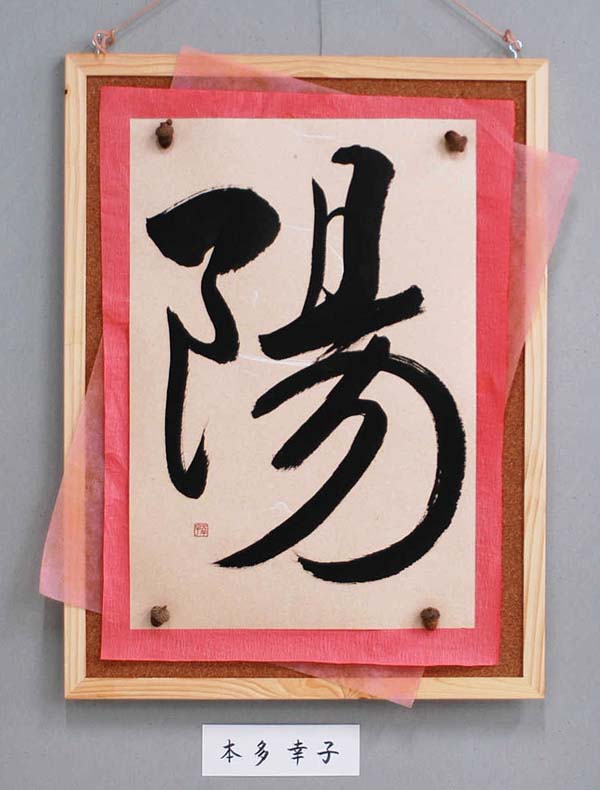 陽
本多幸子